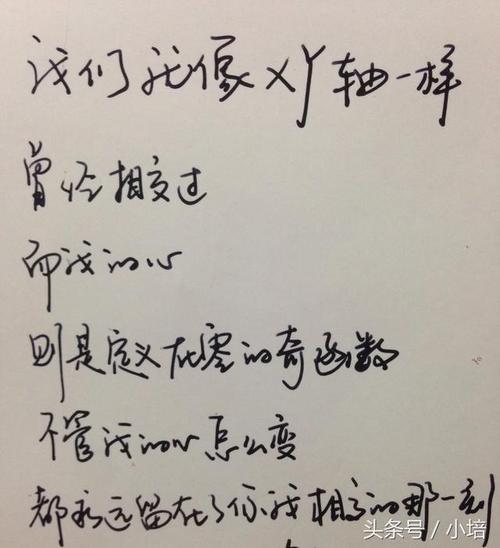 我们就像XY轴一样
曾经相交过
而我的心
则是定义在零的奇函数
不管我的心怎么变
都永远留在了你我相交的那一刻
头条号／小培